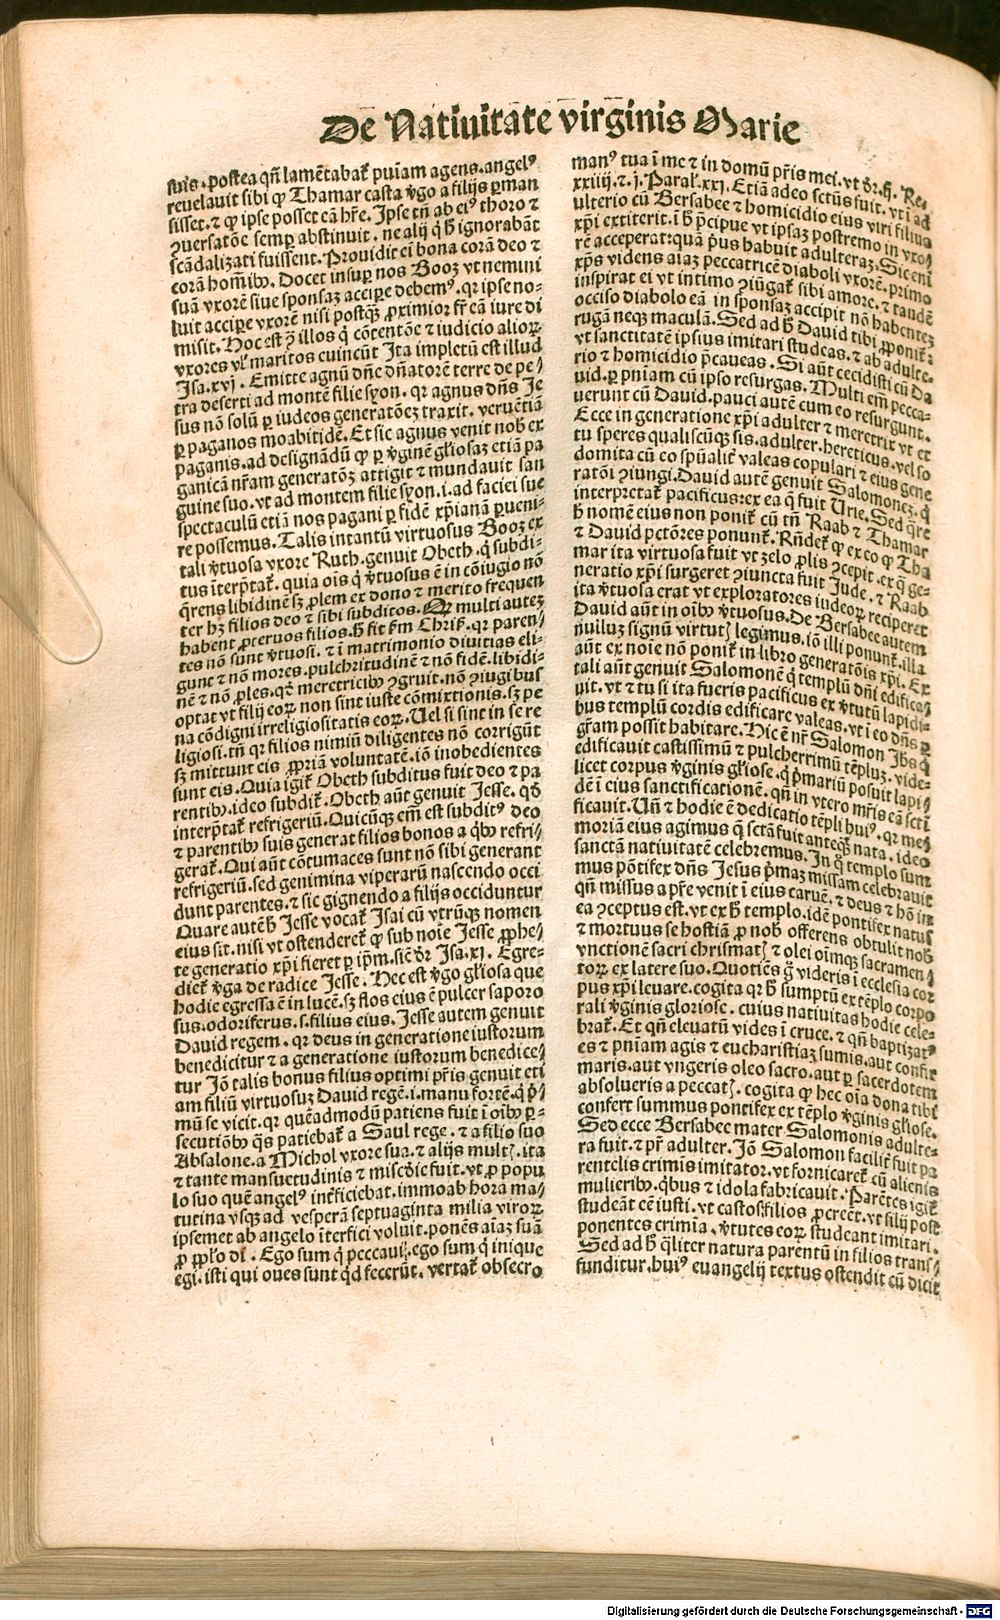 De Natiuitate virginis Marie
suis. postea qñ lamētabat᷑ puīam agens. angelꝰ
reuelauit sibi ꝙ Thamar casta v̄go a filijs ꝑman
sisset. ⁊ ꝙ ipse posset eā hr̄e. Ipse tn̄ ab eiꝰ thoro ⁊
ꝯuersatōe semꝑ abstinuit. ne alij q̇ h̄ ignorabāt
scādalizati fuissent. Prouidit ei bona corā deo ⁊
corā hoīmibꝫ. Docet insuꝑ nos Booz vt nemini
suā vxorē siue sponsaꝫ accipe debemꝰ. qꝛ ipse no-
luit accipe vxorē nisi postqꝫ ꝓximior fr̄ eā iure di
misit. Hoc est ꝯ illos q̇ cōtentōe ⁊ iudicio alioꝝ
vxores vl̓ maritos euincūt Ita impletū est illud
Isa. xvj. Emitte agnū dn̄e dn̄atorē terre de pe/
tra deserti ad montē filie syon. qꝛ agnus dn̄s Je
sus nō solū ꝑ iudeos generatōeꝫ traxit. veruētiā
ꝑ paganos moabitidē. Et sic agnus venit nob̄ ex
paganis. ad designādū ꝙ ꝑ v̄ginē gl̓iosaꝫ etiā pa
ganicā nr̄am generatōꝫ attigit ⁊ mundauit san
guine suo. vt ad montem filie syon. i. ad faciei sue
spectaculū etiā nos pagani ꝑ fidē xp̄ianā ꝑueni-
re possemus. Talis intantū virtuosus Booz ex
tali v̄tuosa vxore Ruth. genuit Obeth. q̇ subdi-
tus īterp̄tat᷑. quia oīs q̇ v̄tuosus ē in cōiugio nō
q̄rens libidinē sꝫ ꝓlem ex dono ⁊ merito frequen
ter hꝫ filios deo ⁊ sibi subditos. Qꝛ multi auteꝫ
habent ꝓteruos filios. h̄ fit ẜm Chriß. qꝛ paren/
tes nō sunt v̄tuosi. ⁊ ī matrimonio diuitias eli-
gunt ⁊ nō mores. pulchritudinē ⁊ nō fidē. libidi-
nē ⁊ nō ꝓles. qd̓ meretricibꝫ ꝯgruit. nō ꝯiugibus
optat vt filij eoꝝ non sint iuste cōmixtionis. sꝫ pe
na cōdigni irreligiositatis eoꝝ. Uel si sint in se re
ligiosi. tn̄ qꝛ filios nimiū diligentes nō corrigūt
sꝫ mittunt eis ꝓpriā voluntatē. iō inobedientes
sunt eis. Quia igit᷑ Obeth subditus fuit deo ⁊ pa
rentibꝫ. ideo subdit᷑. Obeth aūt genuit Jesse. qd̓
interp̄tat᷑ refrigeriū. Quicūqꝫ em̄ est subditꝰ deo
⁊ parentibꝫ suis generat filios bonos a q̇bꝫ refri/
gerat᷑. Qui aūt cōtumaces sunt nō sibi generant
refrigeriū. sed genimina viperarū nascendo occi
dunt parentes. ⁊ sic gignendo a filijs occiduntur
Quare autē h̄ Jesse vocat᷑ Isai cū vtrūqꝫ nomen
eius sit. nisi vt ostenderet᷑ ꝙ sub noīe Jesse ꝓphe/
te generatio xp̄i fieret ꝑ ip̄m. sic̄ dr̄ Isa. xj. Egre-
diet᷑ v̄ga de radice Jesse. Hec est v̄go gl̓iosa que
hodie egressa ē in lucē. sꝫ flos eius ē pulcer saporo
sus. odoriferus. s. filius eius. Jesse autem genuit
Dauid regem. qꝛ deus in generatione iustorum
benedicitur ⁊ a generatione iustorum benedice/
tur Iō talis bonus filius optimi pr̄is genuit eti
am filiū virtuosuꝫ Dauid regē. i. manu fortē. q̇ p̄/
mū se vicit. qꝛ quēadmodū patiens fuit ī oībꝫ ꝑ-
secutiōibꝫ q̄s patiebat᷑ a Saul rege. ⁊ a filio suo
Absalone. a Michol vxore sua. ⁊ alijs multꝭ. ita
⁊ tante mansuetudinis ⁊ mīsc̄die fuit. vt ꝓ popu
lo suo quē angelꝰ int̓ficiebat. immo ab hora ma/
tutina vsqꝫ ad vesperā septuaginta milia viroꝝ
ipsemet ab angelo īterfici voluit. ponēs aīaꝫ suā
ꝓ ppl̓o dī. Ego sum q̇ peccaui. ego sum q̇ inique
egi. isti qui oues sunt qd̓ fecerūt. vertat᷑ obsecro
manꝰ tua ī me ⁊ in domū pr̄is mei. vt dr̄. ij. Re.
xxiiij. ⁊. j. Paral̓. xxj. Etiā adeo sctūs fuit. vt ī ad
ulterio cū Bersabee ⁊ homicidio eius viri filius
xp̄i extiterit. ī h̄ p̄cipue vt ipsaꝫ postremo in vxo/
rē acceperat: quā p̓us habuit adulteraꝫ. Sic eni
xp̄s videns aīaꝫ peccatricē diaboli vxorē. primo
inspirat ei vt intimo ꝯiūgat᷑ sibi amore. ⁊ tandē
occiso diabolo eā in sponsaꝫ accipit nō habenteꝫ
rugā neqꝫ maculā. Sed ad h̄ Dauid tibi ꝓponit᷑:
vt sanctitatē ipsius imitari studeas. ⁊ ab adulte-
rio ⁊ homicidio p̄caueas. Si aūt cecidisti cū Da
uid. ꝑ pn̄iam cū ipso resurgas. Multi em̄ pecca-
uerunt cū Dauid. pauci autē cum eo resurgunt.
Ecce in generatione xp̄i adulter ⁊ meretrix vt et
tu speres qualiscūqꝫ sis. adulter. hereticus. vel so
domita cū eo spūalit̓ valeas copulari ⁊ eius gene
ratōi ꝯiungi. Dauid autē genuit Salomoneꝫ. q̇
interpretat᷑ pacificus: ex ea q̄ fuit Urie. Sed q̄re
h̄ nomē eius non ponit᷑ cū tn̄ Raab ⁊ Thamar
⁊ Dauid pctōres ponunt᷑. Rn̄det᷑ ꝙ ex eo ꝙ Tha
mar ita virtuosa fuit vt zelo ꝓlis ꝯcepit. ex q̄ ge-
neratio xp̄i surgeret ꝯiuncta fuit Jude. ⁊ Raab
ita v̄tuosa erat vt exploratores iudeoꝝ reciperet
Dauid aūt in oībꝫ v̄tuosus. De Bersabee autem
nulluꝫ signū virtutꝭ legimus. iō illi ponunt᷑. illa
aūt ex noīe nō ponit᷑ in libro generatōis xp̄i. Ex
tali aūt genuit Salomonē q̇ templū dn̄i edifica/
uit. vt ⁊ tu si ita fueris pacificus ex v̄tutū lapidi/
bus templū cordis edificare valeas. vt ī eo dn̄s ꝑ
gr̄am possit habitare. Hic ē nr̄ Salomon Ihs̄ q̇
edificauit castissimū ⁊ pulcherrimū tēpluꝫ. vide-
licet corpus v̄ginis gl̓iose. q̇ p̄mariū posuit lapi/
dē ī eius sanctificationē. qn̄ in vtero mr̄is eā sctī
ficauit. Un̄ ⁊ hodie ē dedicatio tēpli huiꝰ. qꝛ me/
moriā eius agimus q̄ sctā fuit anteqꝫ nata. ideo
sanctā natiuitatē celebremus. In q̇ templo sum
mus pōtifex dn̄s Jesus p̄maꝫ missam celebrauit
qn̄ missus a pr̄e venit ī eius carnē. ⁊ deus ⁊ hō in
ea ꝯceptus est. vt ex h̄ templo. idē pontifex natus
⁊ mortuus se hostiā ꝓ nob̄ offerens obtulit nob̄
vnctionē sacri chrismatꝭ ⁊ olei oīmqꝫ sacramen/
toꝝ ex latere suo. Quotiēs g̊ videris ī ecclesia cor
pus xp̄i leuare. cogita qꝛ h̄ sumptū ex tēplo corpo
rali v̄ginis gloriose. cuius natiuitas hodie cele-
brat᷑. Et qn̄ eleuatū vides ī cruce. ⁊ qn̄ baptizatꝰ
es ⁊ pn̄iam agis ⁊ eucharistiaꝫ sumis. aut confir
maris. aut vngeris oleo sacro. aut ꝑ sacerdotem
absolueris a peccatꝭ. cogita ꝙ hec oīa dona tibi
confert summus pontifex ex tēplo v̄ginis gl̓iose.
Sed ecce Bersabee mater Salomonis adulte-
ra fuit. ⁊ pr̄ adulter. Iō Salomon facilit̓ fuit pa
rentelis crimīs imitator. vt fornicaret᷑ cū alienis
mulieribꝫ. q̇bus ⁊ idola fabricauit. Parētes igit᷑
studeāt eē iusti. vt castos filios ꝓcreēt. vt filij post
ponentes crimīa. v̄tutes eoꝝ studeant imitari.
Sed ad h̄ q̄liter natura parentū in filios trans/
funditur. huiꝰ euangelij textus ostendit cū dicit
Digitalisierung gefördert durch die Deutsche Forschungsgemeinschaft - DFG